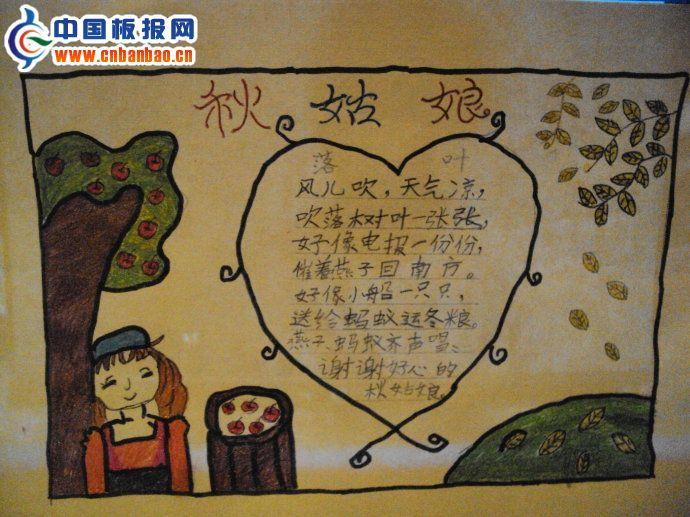 中国板报网
www.cnbanbao.cn
秋姑娘
落叶
风儿吹，天气凉，
吹落树叶一张张，
好像电报一份份，
催着燕子回南方。
好像小船一只只，
送给蚂蚁运冬粮。
燕子、蚂蚁齐声唱：
谢谢好心的
秋姑娘。